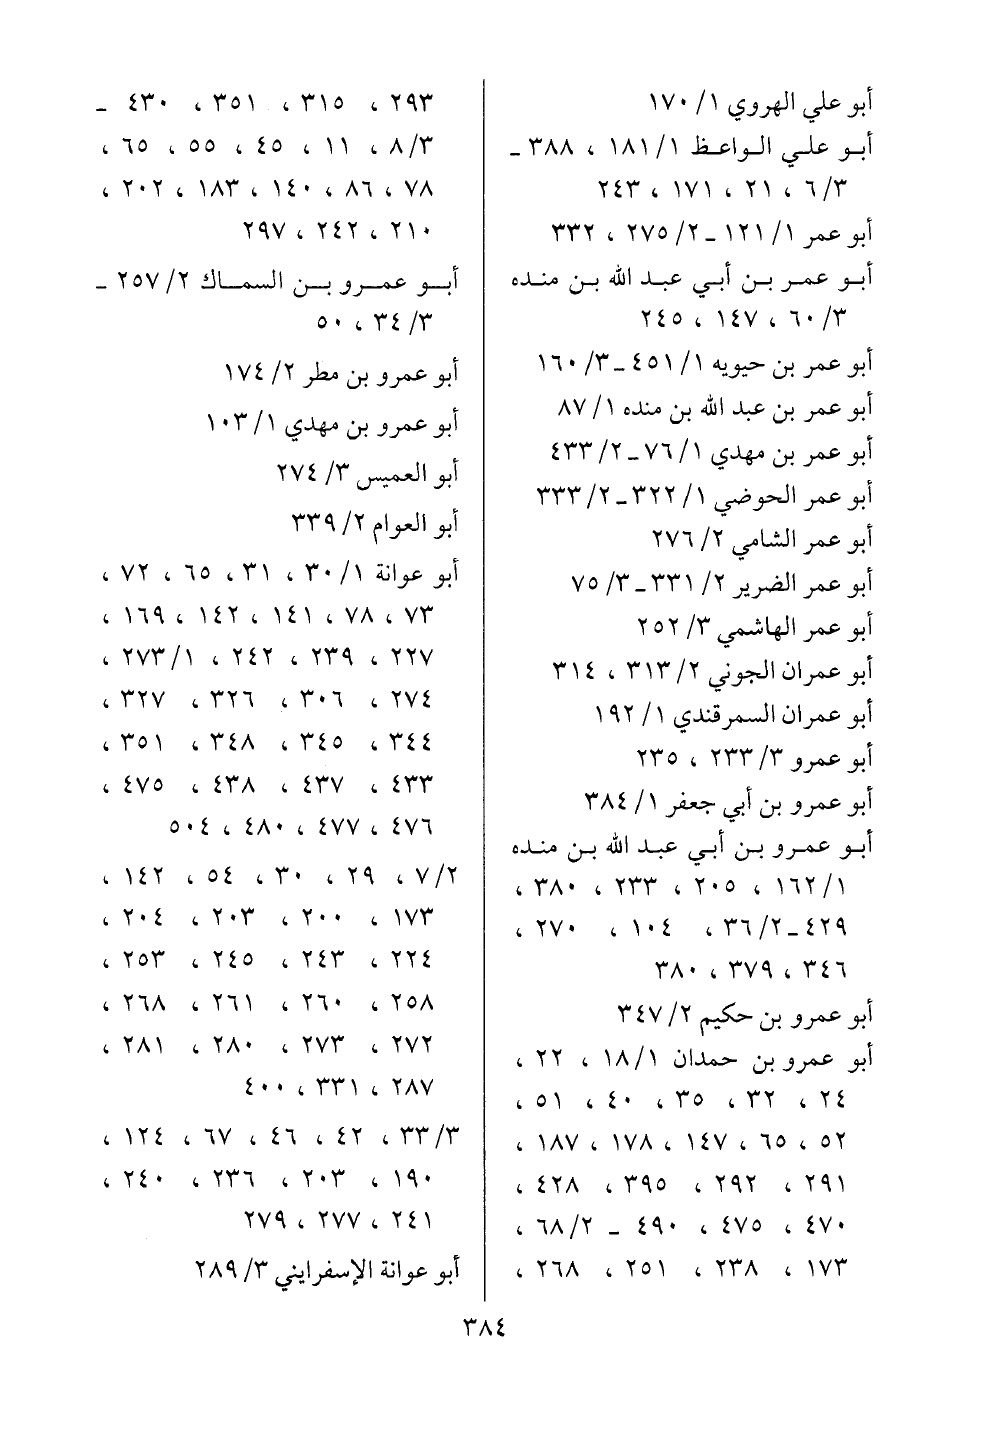 أبو علي الهروي ١/ ١٧٠
أبـو علـي الـواعـظ ١/ ١٨١ ، ٣٨٨ ـ
٣/ ٦ ، ٢١ ، ١٧١ ، ٢٤٣
أبو عمر ١/ ١٢١ ـ ٢/ ٢٧٥ ، ٣٣٢
أبـو عمـر بـن أبـي عبـد الله بـن منـده
٣/ ٦٠ ، ١٤٧ ، ٢٤٥
أبو عمر بن حيويه ١/ ٤٥١ ـ ٣/ ١٦٠
أبو عمر بن عبد الله بن منده ١/ ٨٧
أبو عمر بن مهدي ١/ ٧٦ ـ ٢/ ٤٣٣
أبو عمر الحوضي ١/ ٣٢٢ ـ ٢/ ٣٣٣
أبو عمر الشامي ٢/ ٢٧٦
أبو عمر الضرير ٢/ ٣٣١ ـ ٣/ ٧٥
أبو عمر الهاشمي ٣/ ٢٥٢
أبو عمران الجوني ٢/ ٣١٣ ، ٣١٤
أبو عمران السمرقندي ١/ ١٩٢
أبو عمرو ٣/ ٢٣٣ ، ٢٣٥
أبو عمرو بن أبي جعفر ١/ ٣٨٤
أبـو عمـرو بـن أبـي عبـد الله بـن منـده
١/ ١٦٢ ، ٢٠٥ ، ٢٣٣ ، ٣٨٠ ،
٤٢٩ ـ ٢/ ٣٦ ، ١٠٤ ، ٢٧٠ ،
٣٤٦ ، ٣٧٩ ، ٣٨٠
أبو عمرو بن حكيم ٢/ ٣٤٧
أبو عمرو بن حمدان ١/ ١٨ ، ٢٢ ،
٢٤ ، ٣٢ ، ٣٥ ، ٤٠ ، ٥١ ،
٥٢ ، ٦٥ ، ١٤٧ ، ١٧٨ ، ١٨٧ ،
٢٩١ ، ٢٩٢ ، ٣٩٥ ، ٤٢٨ ،
٤٧٠ ، ٤٧٥ ، ٤٩٠ ـ ٢/ ٦٨ ،
١٧٣ ، ٢٣٨ ، ٢٥١ ، ٢٦٨ ،
٢٩٣ ، ٣١٥ ، ٣٥١ ، ٤٣٠ ـ
٣/ ٨ ، ١١ ، ٤٥ ، ٥٥ ، ٦٥ ،
٧٨ ، ٨٦ ، ١٤٠ ، ١٨٣ ، ٢٠٢ ،
٢١٠ ، ٢٤٢ ، ٢٩٧
أبـو عمـرو بـن السمـاك ٢/ ٢٥٧ ـ
٣/ ٣٤ ، ٥٠
أبو عمرو بن مطر ٢/ ١٧٤
أبو عمرو بن مهدي ١/ ١٠٣
أبو العميس ٣/ ٢٧٤
أبو العوام ٢/ ٣٣٩
أبو عوانة ١/ ٣٠ ، ٣١ ، ٦٥ ، ٧٢ ،
٧٣ ، ٧٨ ، ١٤١ ، ١٤٢ ، ١٦٩ ،
٢٢٧ ، ٢٣٩ ، ٢٤٢ ، ١/ ٢٧٣ ،
٢٧٤ ، ٣٠٦ ، ٣٢٦ ، ٣٢٧ ،
٣٤٤ ، ٣٤٥ ، ٣٤٨ ، ٣٥١ ،
٤٣٣ ، ٤٣٧ ، ٤٣٨ ، ٤٧٥ ،
٤٧٦ ، ٤٧٧ ، ٤٨٠ ، ٥٠٤
٢/ ٧ ، ٢٩ ، ٣٠ ، ٥٤ ، ١٤٢ ،
١٧٣ ، ٢٠٠ ، ٢٠٣ ، ٢٠٤ ،
٢٢٤ ، ٢٤٣ ، ٢٤٥ ، ٢٥٣ ،
٢٥٨ ، ٢٦٠ ، ٢٦١ ، ٢٦٨ ،
٢٧٢ ، ٢٧٣ ، ٢٨٠ ، ٢٨١ ،
٢٨٧ ، ٣٣١ ، ٤٠٠
٣/ ٣٣ ، ٤٢ ، ٤٦ ، ٦٧ ، ١٢٤ ،
١٩٠ ، ٢٠٣ ، ٢٣٦ ، ٢٤٠ ،
٢٤١ ، ٢٧٧ ، ٢٧٩
أبو عوانة الإسفرايني ٣/ ٢٨٩
٣٨٤